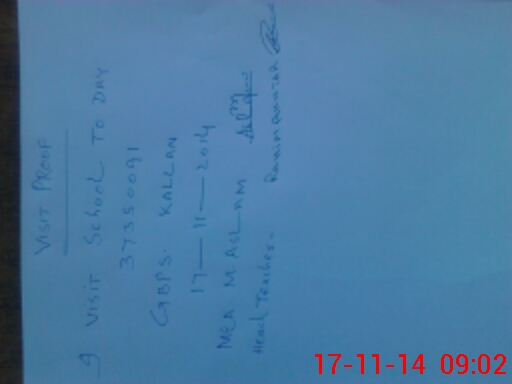 VISIT PROOF
I VISIT School TO DAY
37350091
GBPS. KALLAN
17 — 11 — 2014
MEA M. ASLAM
Head Teacher -
17-11-14 09:02